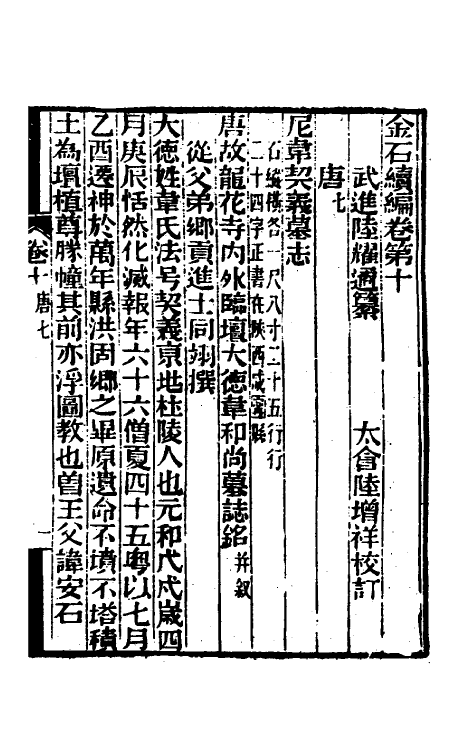 金石續編卷第十
武進陸耀遹纂　太倉陸增祥校訂
唐七
尼韋契義墓志
石縱橫各一尺八寸二十五行行
二十四字正書在陝西咸寧縣
唐故龍花寺內外臨壇大德韋和尚墓誌銘并敘
從父弟鄉貢進士同翊撰
大德姓韋氏法号契義京地杜陵人也元和戊戌歲四
月庚辰恬然化滅報年六十六僧夏四十五粵以七月
乙酉遷神於萬年縣洪固鄉之畢原遺命不墳不塔積
土為壇植尊勝幢其前亦浮圖教也曽王父諱安石
卷十　唐七　一